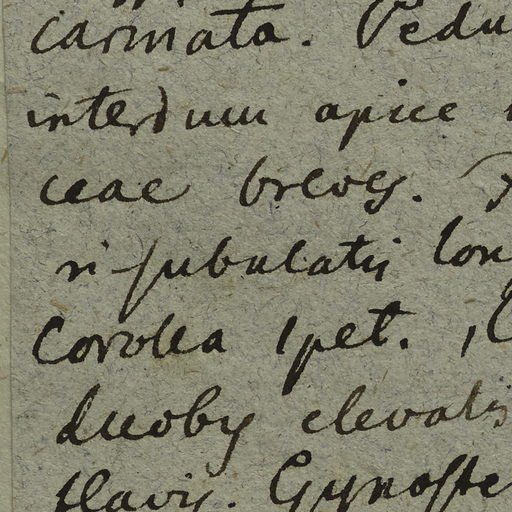 carinata. Pedu
interdum apice
ceae breves.
ri-subulatis lon
Corolla 1pet.
duobus elevatis
flavis. Gynoste